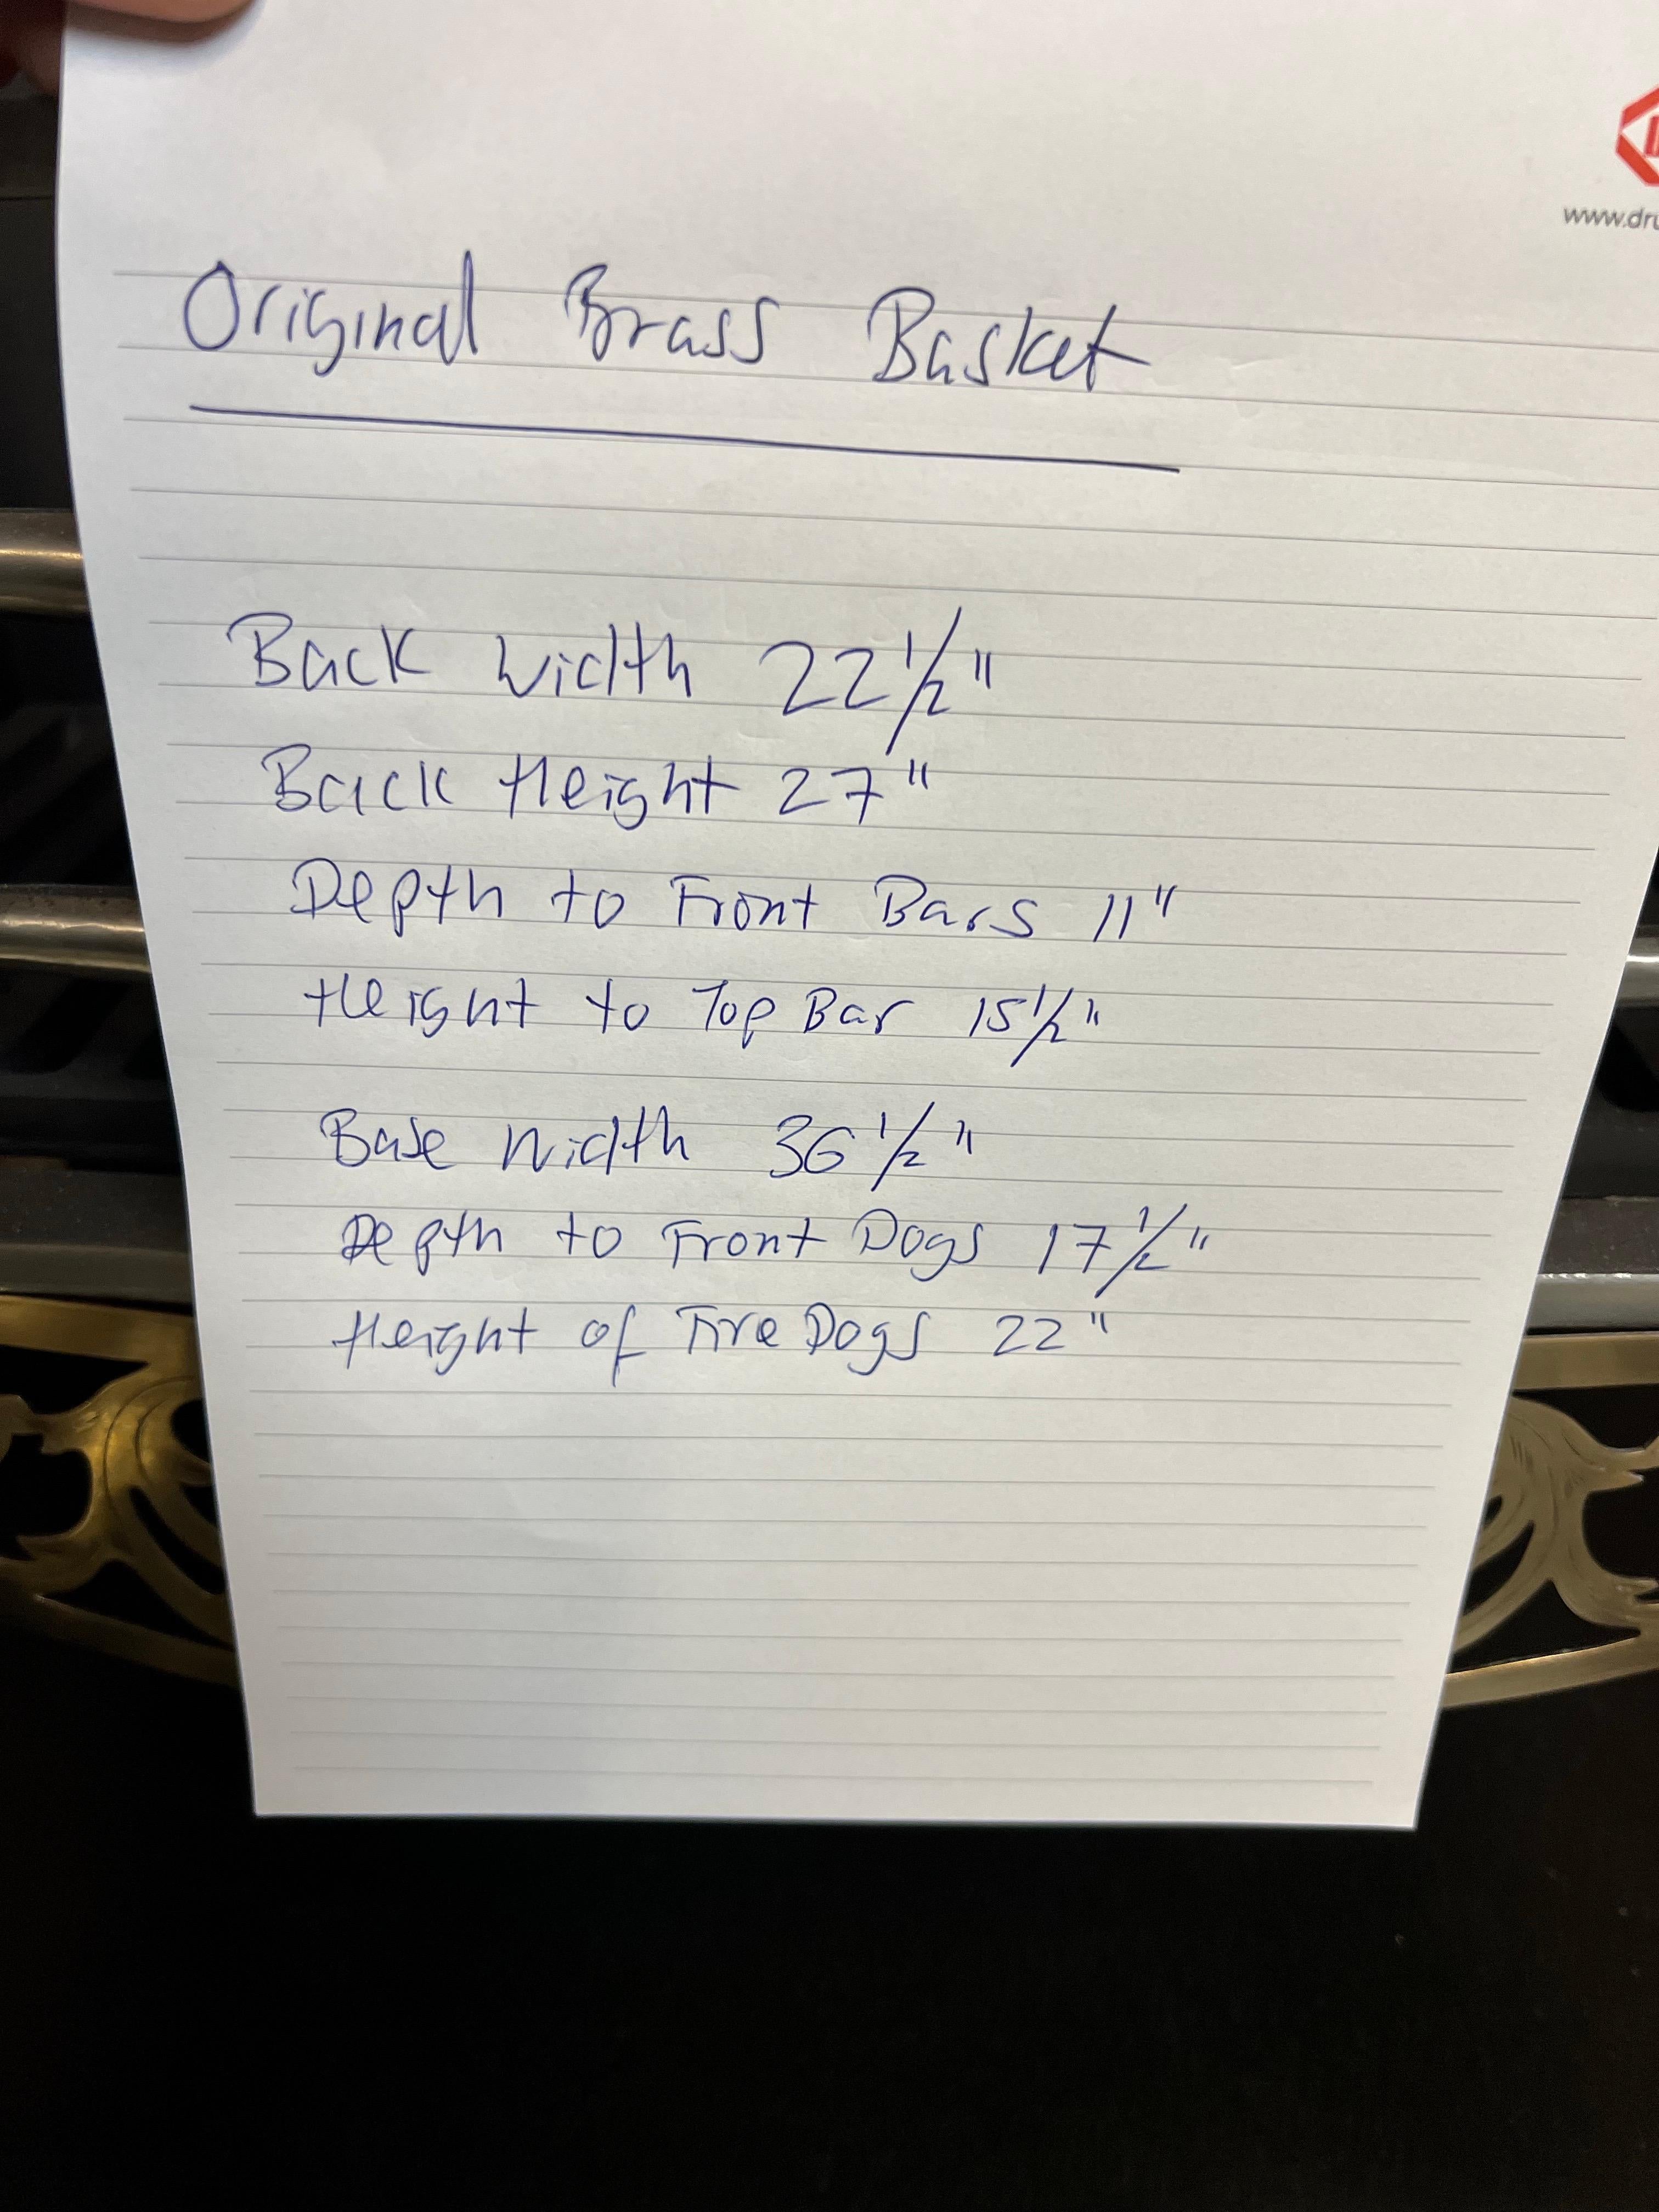 www.dru
Original Brass Basket
Back Width 22 1/2"
Back Height 27"
Depth to Front Bars 11"
Height to Top Bar 15 1/2"
Base Width 36 1/2"
Depth to Front Dogs 17 1/2"
Height of Fire Dogs 22"